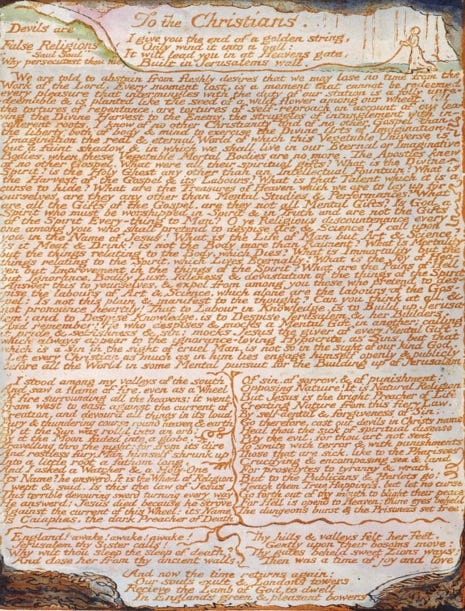 To the Christians.
Devils are
False Religions
Saul Saul
Why persecutest thou me.
I give you the end of a golden string,
Only wind it into a ball:
It will lead you in at Heavens gate,
Built in Jerusalems wall.
We are told to abstain from fleshly desires that we may lose no time from the
Work of the Lord. Every moment lost, is a moment that cannot be redeemed
every pleasure that intermingles with the duty of our station is a folly un-
redeemable & is planted like the seed of a wild flower among our wheat. All
the tortures of repentance are tortures of self-reproach on account of our leav-
ing the Divine Harvest to the Enemy, the struggles of entanglement with inco-
herent roots. I know of no other Christianity and of no other Gospel than
the liberty both of body & mind to exercise the Divine Arts of Imagination
Imagination the real & eternal World of which this Vegetable Universe is
but a faint shadow & in which we shall live in our Eternal or Imaginative
Bodies, when these Vegetable Mortal Bodies are no more. The Apostles knew
of no other Gospel. What were all their spiritual gifts? What is the Divine
Spirit? is the Holy Ghost any other than an Intellectual Fountain? What is
the Harvest of the Gospel & its Labours? What is that Talent which it is a
curse to hide? What are the Treasures of Heaven which we are to lay up for
ourselves, are they any other than Mental Studies & Performances? What
are all the Gifts of the Gospel, are they not all Mental Gifts? Is God a
Spirit who must be worshipped in Spirit & in Truth and are not the Gifts
of the Spirit Every-thing to Man? O ye Religious discountenance every
one among you who shall pretend to despise Art & Science! I call upon
you in the Name of Jesus! What is the Life of Man but Art & Science?
is it Meat & Drink? is not the Body more than Raiment? What is Mortality
but the things relating to the Body, which Dies? What is Immortality
but the things relating to the Spirit, which Lives Eternally! What is the Joy of Heav-
en but Improvement in the things of the Spirit? What are the Pains of Hell
but Ignorance, Bodily Lust, Idleness & devastation of the things of the Spirit
Answer this to yourselves, & expel from among you those who pretend to
despise the labours of Art & Science, which alone are the labours of the Gos-
pel: Is not this plain & manifest to the thought? Can you think at all &
not pronounce heartily! That to Labour in Knowledge, is to Build up Jerusa-
lem: and to Despise Knowledge, is to Despise Jerusalem & her Builders.
And remember: He who despises & mocks a Mental Gift in another; calling
it pride & selfishness & sin; mocks Jesus the giver of every Mental Gift,
which always appear to the ignorance-loving Hypocrite, as Sins, but that
which is a Sin in the sight of cruel Man, is not so in the sight of our kind God.
Let every Christian as much as in him lies engage himself openly & publicly
before all the World in some Mental pursuit for the Building up of Jerusalem
I stood among my valleys of the south
And saw a flame of fire, even as a Wheel
Of fire surrounding all the heavens: it went
From west to east against the current of
Creation and devourd all things in its loud
Fury & thundering course round heaven & earth
By it the Sun was rolld into an orb:
By it the Moon faded into a globe,
Travelling thro the night: for from its dire
And restless fury, Man himself shrunk up
Into a little root a fathom long.
And I asked a Watcher & a Holy-One
Its Name? he answerd. It is the Wheel of Religion
I wept & said. Is this the law of Jesus
This terrible devouring sword turning every way
He answerd; Jesus died because he strove
Against the current of this Wheel: its Name
Is Caiaphas, the dark Preacher of Death
Of sin, of sorrow, & of punishment;
Opposing Nature! It is Natural Religion
But Jesus is the bright Preacher of Life
Creating Nature from this fiery Law,
By self-denial & forgiveness of Sin.
Go therefore, cast out devils in Christs name
Heal thou the sick of spiritual disease
Pity the evil, for thou art not sent
To smite with terror & with punishments
Those that are sick, like to the Pharisees
Crucifying & encompassing sea & land
For proselytes to tyranny & wrath,
But to the Publicans & Harlots go!
Teach them True Happiness, but let no curse
Go forth out of thy mouth to blight their peace
For Hell is opend to Heaven; thine eyes beheld
The dungeons burst & the Prisoners set free.
England! awake! awake! awake!
Jerusalem thy Sister calls!
Why wilt thou sleep the sleep of death?
And close her from thy ancient walls.
Thy hills & valleys felt her feet,
Gently upon their bosoms move:
Thy gates beheld sweet Zions ways;
Then was a time of joy and love
And now the time returns again:
Our souls exult & Londons towers,
Recieve the Lamb of God to dwell
In Englands green & pleasant bowers.